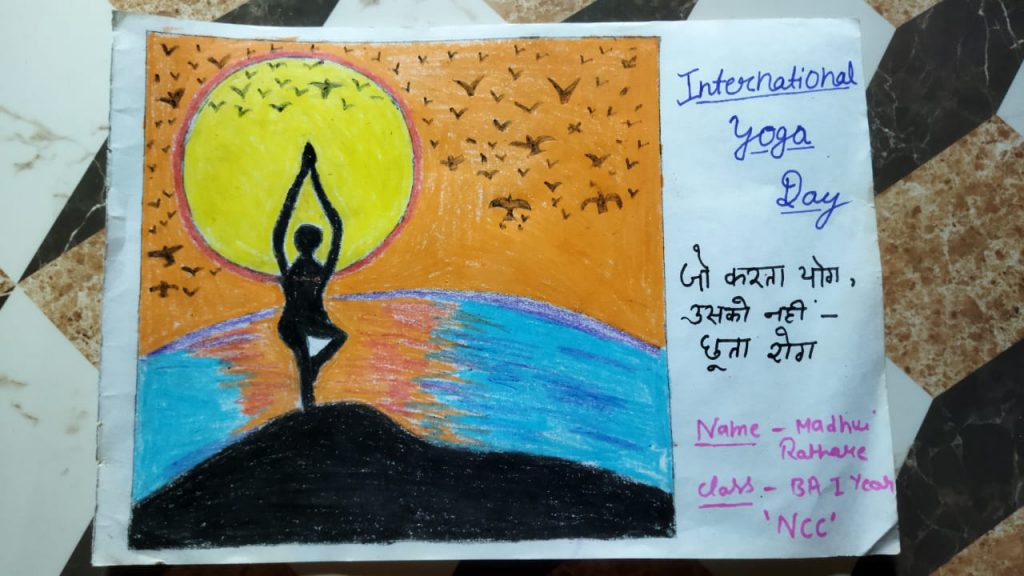 International
Yoga
Day
जो करता योग,
उसको नहीं -
छूता रोग
Name - Madhwi
Rathare
Class - BA I Year
'NCC'